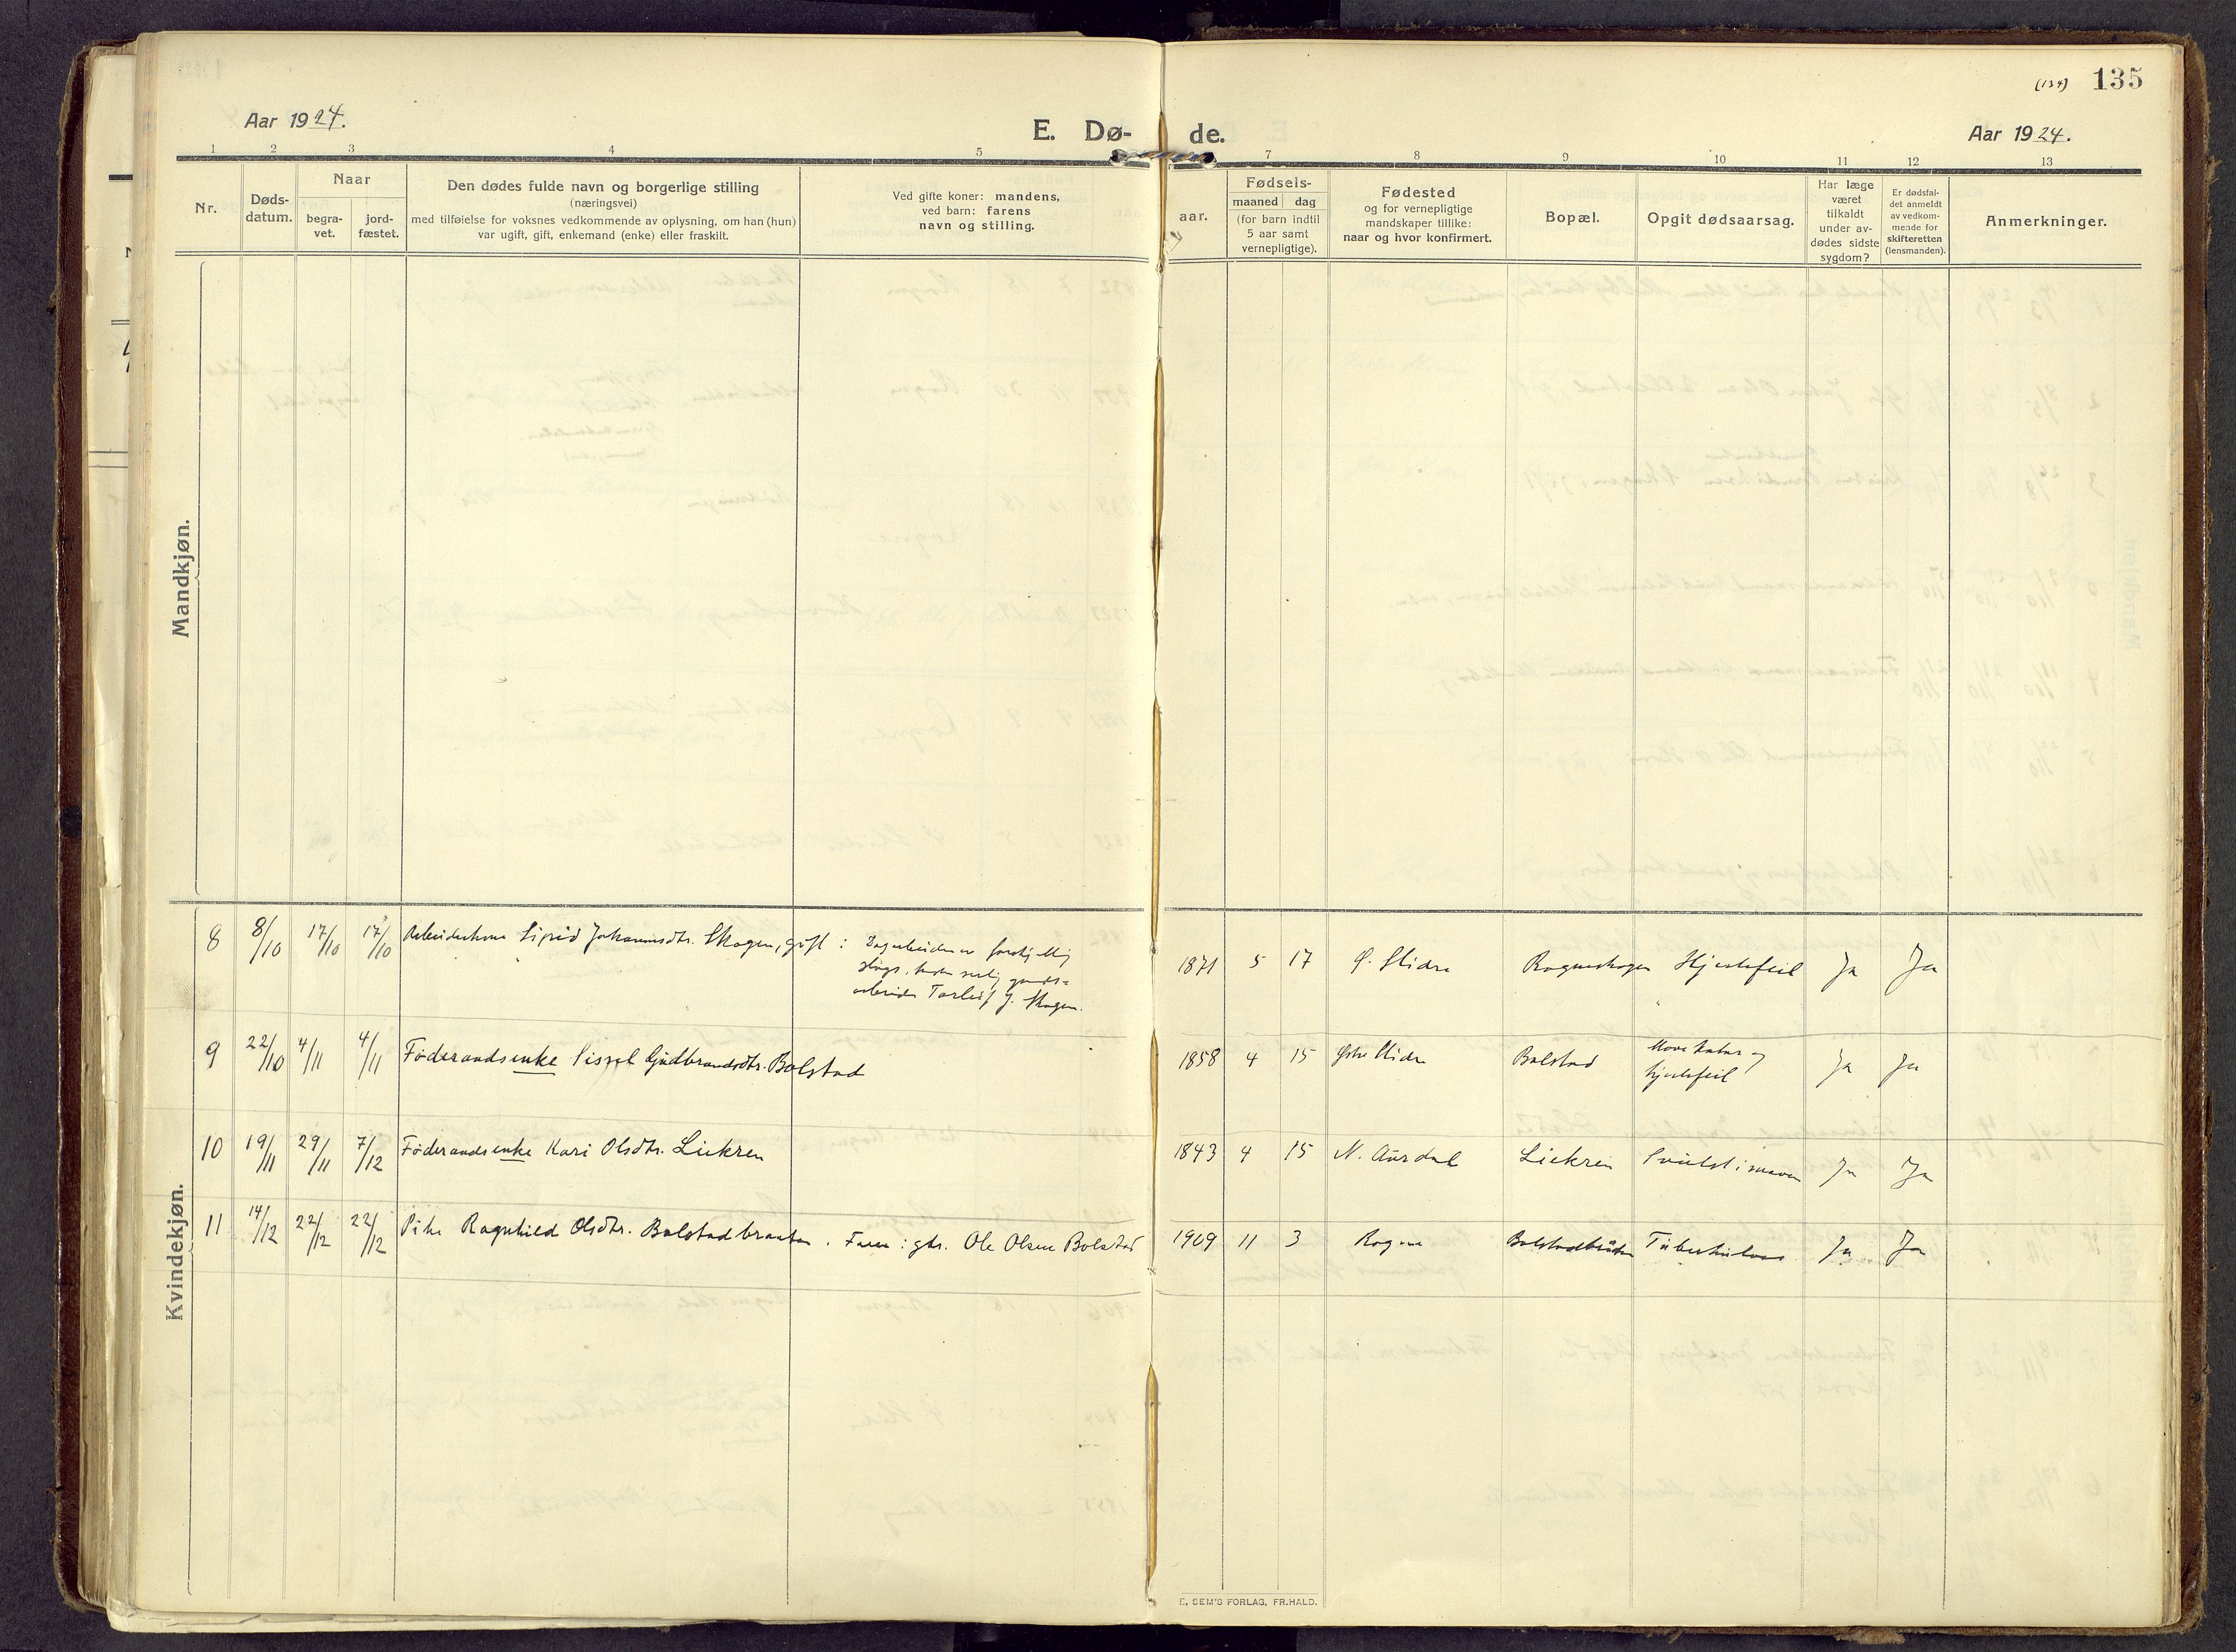 (134) 135
Aar 1924.
E. Dø- de.
Aar 1924.
1 2 3 4 5 7 8 9 10 11 12 13
Nr.
Døds-
datum.
Naar
begra-
vet.
jord-
fæstet.
Den dødes fulde navn og borgerlige stilling
(næringsvei)
med tilføielse for voksnes vedkommende av oplysning, om han (hun)
var ugift, gift, enkemand (enke) eller fraskilt.
Ved gifte koner: mandens,
ved barn: farens
navn og stilling.
aar.
Fødsels-
maaned dag
(for barn indtil
5 aar samt
vernepligtige).
Fødested
og for vernepligtige
mandskaper tillike:
naar og hvor konfirmert.
Bopæl.
Opgit dødsaarsag.
Har læge
været
tilkaldt
under av-
dødes sidste
sygdom?
Er dødsfal-
det anmeldt
av vedkom-
mende for
skifteretten
(lensmanden).
Anmerkninger.
Mandkjøn.
Kvindekjøn.
8 8/10 17/10 17/10 Arbeiderkone Sigrid Johannisdtr. Skogen, gift :
arbeider Torleif J. Skogen.
1871 5 17 Ø. Slidre Rogneskogen Hjertefeil Ja Ja
9 22/10 4/11 4/11 Føderaadsenke Sissel Gudbrandsdtr. Bolstad 1858 4 15 Østre Slidre Bolstad og
hjertefeil Ja Ja
10 19/11 29/11 7/12 Føderaadsenke Kari Olsdtr. Liekren 1843 4 15 N. Aurdal Liekren Svulst i maven Ja Ja
11 14/12 22/12 22/12 Pike Ragnhild Olsdtr. Bolstadbraaten. Faren: gbr. Ole Olsen Bolstad 1909 11 3 Rogne Bolstadbråten Tuberkulose Ja Ja
E. SEM'S FORLAG, FR.HALD.